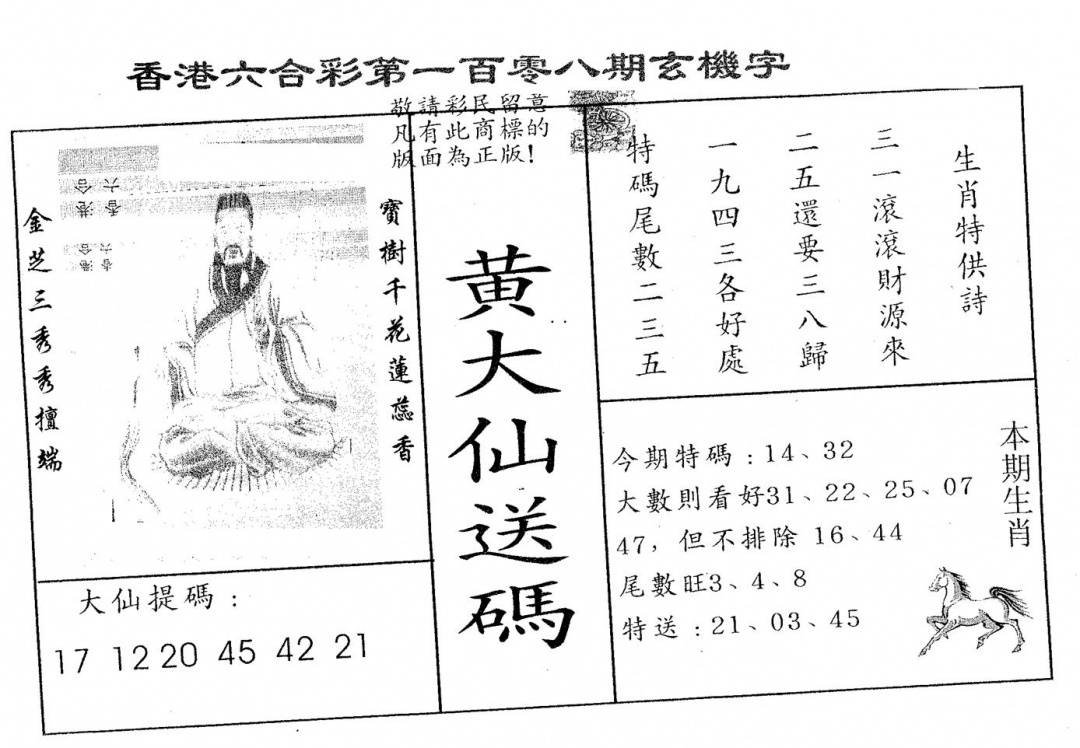 香港六合彩第一百零八期玄機字
敬請彩民留意
凡有此商標的
版面為正版！
生肖特供詩
三一滾滾財源來
二五還要三八歸
一九四三各好處
特碼尾數二三五
黃大仙送碼
寶樹千花蓮蕊香
金芝三秀秀擅端
香六
港合
香六
港合
本期生肖
今期特碼：14、32
大數則看好31、22、25、07
47，但不排除 16、44
尾數旺3、4、8
特送：21、03、45
大仙提碼：
17 12 20 45 42 21